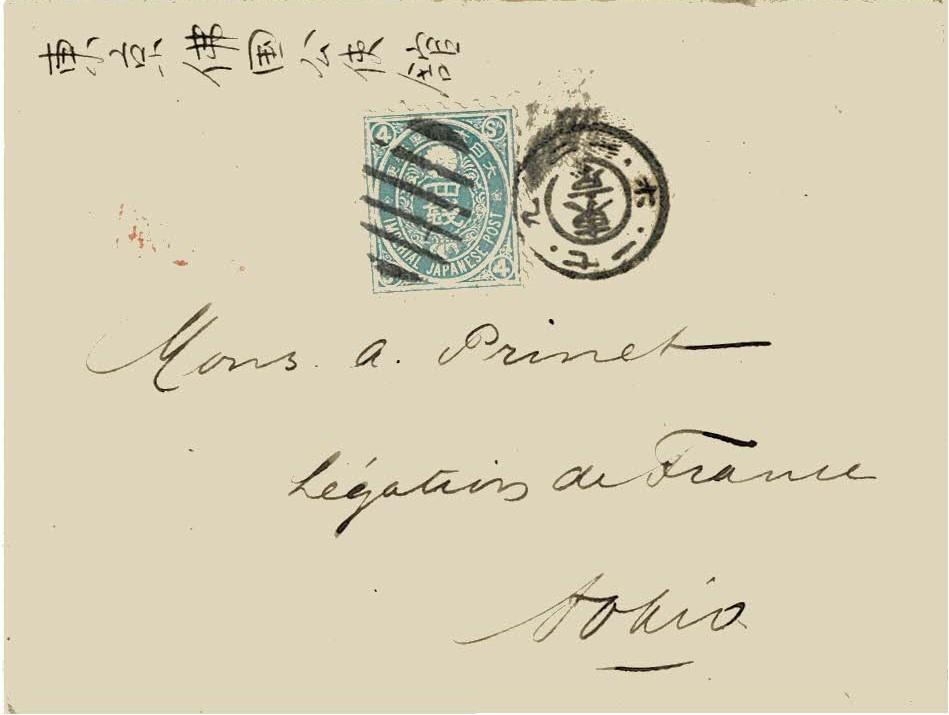 東京佛国公使館
4 Sn
IMPERIAL JAPANESE POST
4
Mons. A. Prinet
Légation de France
Tokio